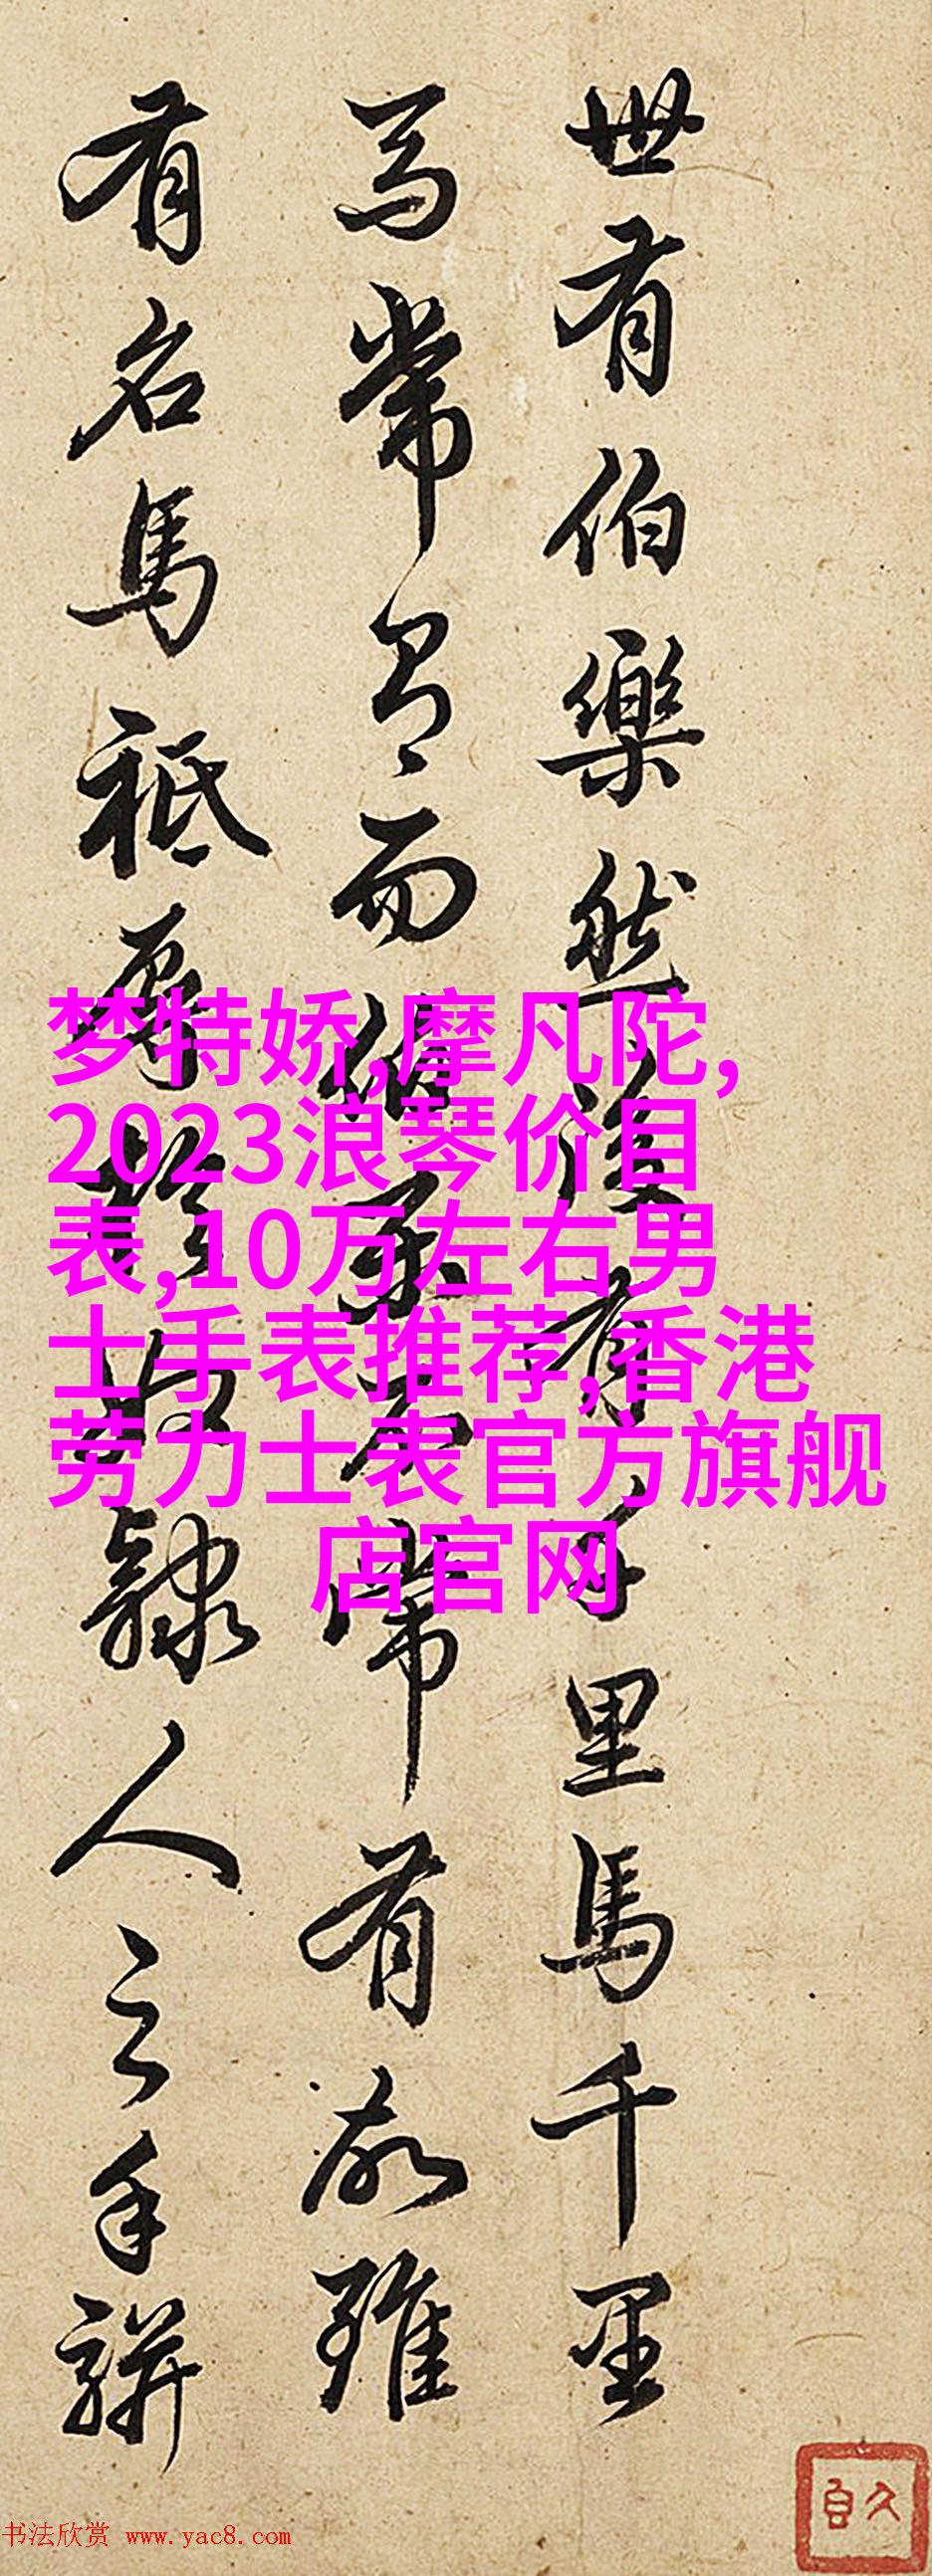 世有伯樂然後有千里馬千里
馬常有而伯樂不常有故雖
有名馬祗辱於奴隸人之手駢
梦特娇,摩凡陀,
2023浪琴价目
表,10万左右男
士手表推荐,香港
劳力士表官方旗舰
店官网
书法欣赏 www.yac8.com